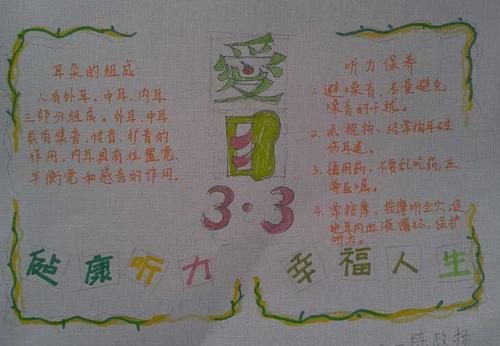 耳朵的组成
人有外耳、中耳、内耳
三部分组成。外耳、中耳
具有集音、传音、扩音的
作用，内耳具有位置觉、
平衡觉和感音的作用。
愛
耳
3·3
听力保养
1. 避噪音，尽量避免
噪音的干扰。
2. 戒挖掏，经常掏耳
伤耳道。
3. 慎用药，不要乱吃药，应
遵医嘱。
4. 常按摩，按摩听会穴，促
进耳内血液循环，保护
听力。
健康听力
幸福人生
陈政扬